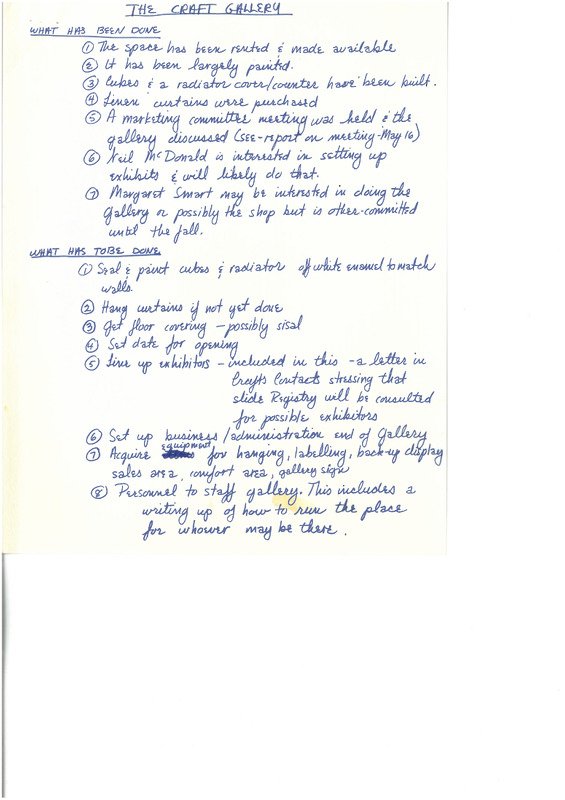 THE CRAFT GALLERY
WHAT HAS BEEN DONE
① The space has been rented & made available
② It has been largely painted.
③ Cubes & a radiator cover/counter have been built.
④ Linen curtains were purchased
⑤ A marketing committee meeting was held & the
gallery discussed (SEE-report on meeting-May 16)
⑥ Neil McDonald is interested in setting up
exhibits & will likely do that.
⑦ Margaret Smart may be interested in doing the
Gallery or possibly the shop but is other-committed
until the fall.
WHAT HAS TO BE DONE
① Seal & paint cubes & radiator off white enamel to match
walls.
② Hang curtains if not yet done
③ Get floor covering - possibly sisal
④ Set date for opening
⑤ Line up exhibitors - included in this - a letter in
Crafts Contacts stressing that
slide Registry will be consulted
for possible exhibitors
⑥ Set up business/administration end of Gallery
⑦ Acquire equipment for hanging, labelling, back-up display
sales area, comfort area, gallery sign
⑧ Personnel to staff gallery. This includes a
writing up of how to run the place
for whower may be there.